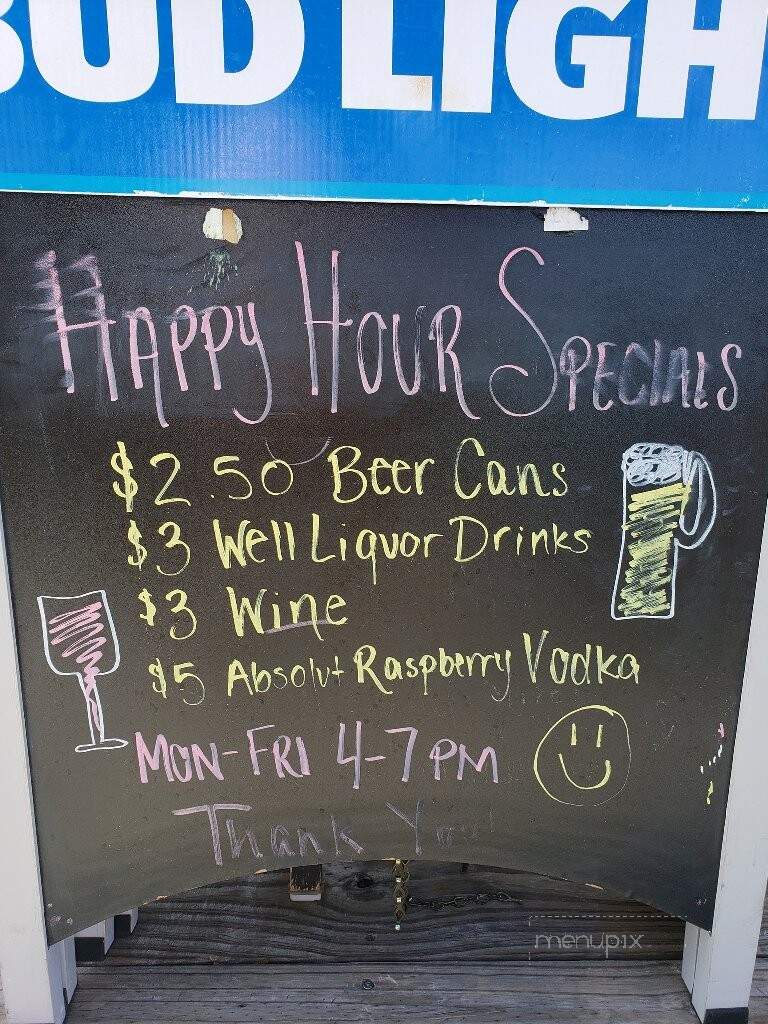 BUD LIGH
Happy Hour Specials
$2.50 Beer Cans
$3 Well Liquor Drinks
$3 Wine
$5 Absolut Raspberry Vodka
MON-FRI 4-7 PM
Thank You
menupix